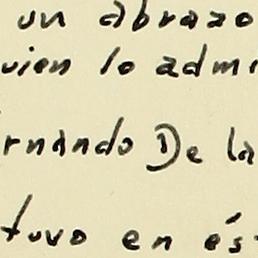 un abrazo
uien lo admi
rnando De la
tuvo en és